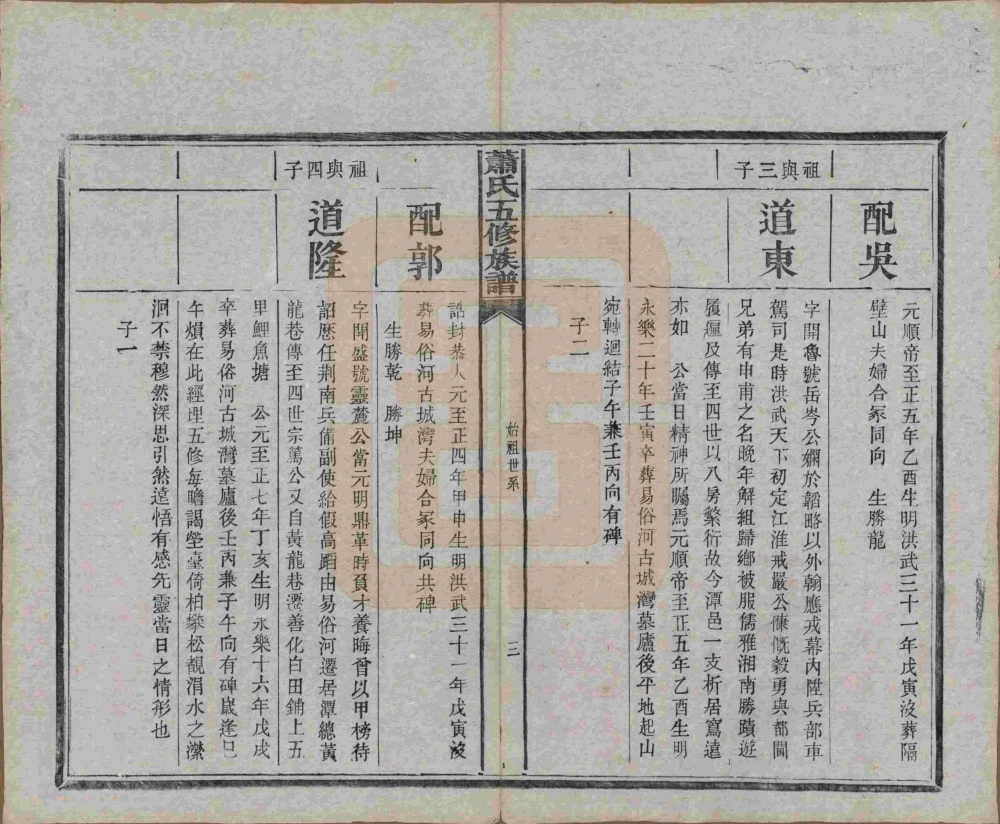 配吳
元順帝至正五年乙酉生明洪武三十一年戊寅沒葬隔
壁山夫婦合冢同向　生勝龍
祖與三子
道東
字開魯號岳岑公嫻於韜略以外翰應戎幕內陞兵部車
駕司是時洪武天下初定江淮戒嚴公慷慨毅勇與都閫
兄弟有申甫之名晚年解組歸鄉被服儒雅湘南勝蹟遊
履遍及傳至四世以八房繁衍故今潭邑一支析居寫遠
亦如　公當日精神所矚焉元順帝至正五年乙酉生明
永樂二十年壬寅卒葬易俗河古城灣墓廬後平地起山
宛轉迴結子午兼壬丙向有碑
子二
蕭氏五修族譜
始祖世系
三
配郭
誥封恭人元至正四年甲申生明洪武三十一年戊寅沒
葬易俗河古城灣夫婦合冢同向共碑
生勝乾　勝坤
祖與四子
道隆
字開盛號靈麓公當元明鼎革時負才養晦曾以甲榜待
詔歷任荆南兵備副使給假高蹈由易俗河遷居潭總黃
龍巷傳至四世宗篤公又自黃龍巷遷善化白田鋪上五
甲鯉魚塘　公元至正七年丁亥生明永樂十六年戊戌
卒葬易俗河古城灣墓廬後壬丙兼子午向有碑歲逢巳
午熂在此經理五修每瞻謁塋臺倚柏攀松覩涓水之瀠
洄不禁穆然深思引然遠悟有感先靈當日之情形也
子一